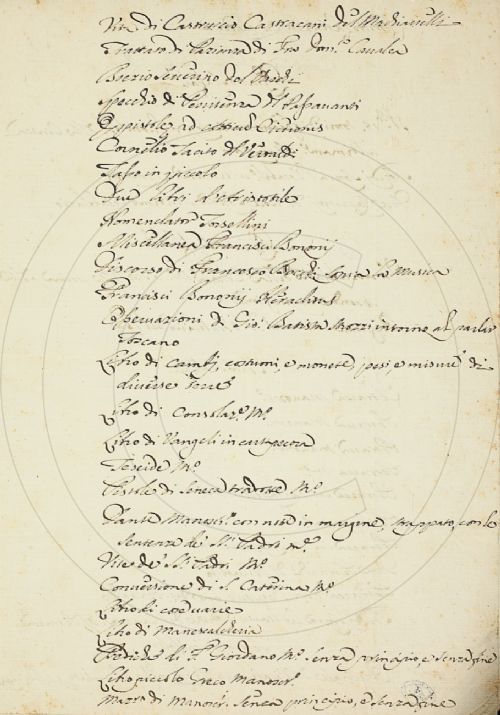 Vita di Castruccio Castracani del Machiavelli
Trattato di Pazienza di Fra Dom.co Cavalca
Boezio Severino del Varchi
Specchio di Penitenza del Passavanti
Epistole ad Ciceronis
Cornelio Tacito
Tasso in piccolo
Due libri d'Aristotile
Nomenclator Torsellini
Miscellanea Francisci Bononij
Discorso di Francesco Bardi sopra la Musica
Francisci Bononij Heraclitus
Osservazioni di Gio: Batista Strozzi intorno al parlar
Toscano
Libro di cambj, costumi, e monete, pesi, e misure di
diverse Terre
Libro di Consolaz.e M.o
Libro di Vangeli in cartapecora
Teseide M.o
Pistole di Seneca tradotte M.o
Dante Manoscr.o con note in margine, strappato, con le
sentenze de' S.ti Padri m.o
Vite de' S.ti Padri M.o
Conversione di S. Caterina M.o
Libro di cose varie
Libro di Manescalcheria
Prediche di F. Giordano M.o senza principio, e senza fine
Libro piccolo Greco Manoscr.o
Manoscr. senza principio, e senza fine